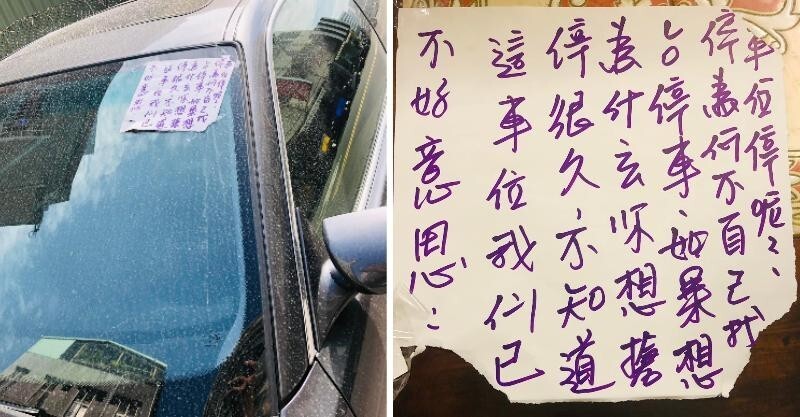 不好意思：
這車位我们已
停很久，不知道
為什么你想搶
占停車、如果想
停為何不自己找
車位停呢？